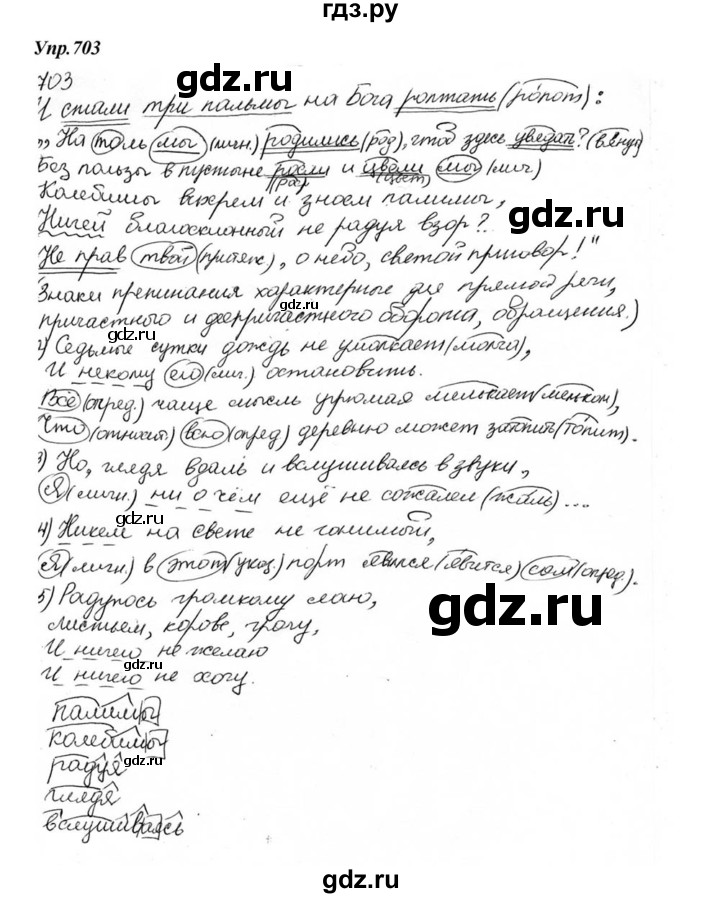 гдз.ру
Упр.703
703
И стали три пальмы на Бога роптать (ропот):
„На то ль мы (личн.) родились (род), чтоб здесь увядать? (вянуть)
Без пользы в пустыне росли и цвели мы (лич)
(рас) (цвет)
Колеблемы вихрем и зноем палимы,
Ничей благосклонный не радуя взор?..
Не прав твой (притяж), о небо, святой приговор!"
gdz.ru
Знаки препинания характерные для прямой речи,
причастного и деепричастного оборота, обращения.)
gdz.ru
2) Седьмые сутки дождь не умолкает (молча),
И некому его (лич.) остановить.
Всё (опред.) чаще мысль угрюмая мелькает (мельком),
Что (относит) всю (опред) деревню может затопить (топит).
gdz.ru
3) Но, глядя вдаль и вслушиваясь в звуки,
Я (личн.) ни о чём ещё не сожалел (жаль)...
gdz.ru
4) Никем на свете не гонимый,
Я (личн.) в этот (указ.) порт явился (явится) сам (опред.).
5) Радуюсь громкому лаю,
листьям, корове, грачу,
gdz.ru
И ничего не желаю
gdz.ru
И ничего не хочу.
палимы
колеблемы
gdz.ru
радуя
глядя
вслушиваясь
gdz.ru
gdz.ru